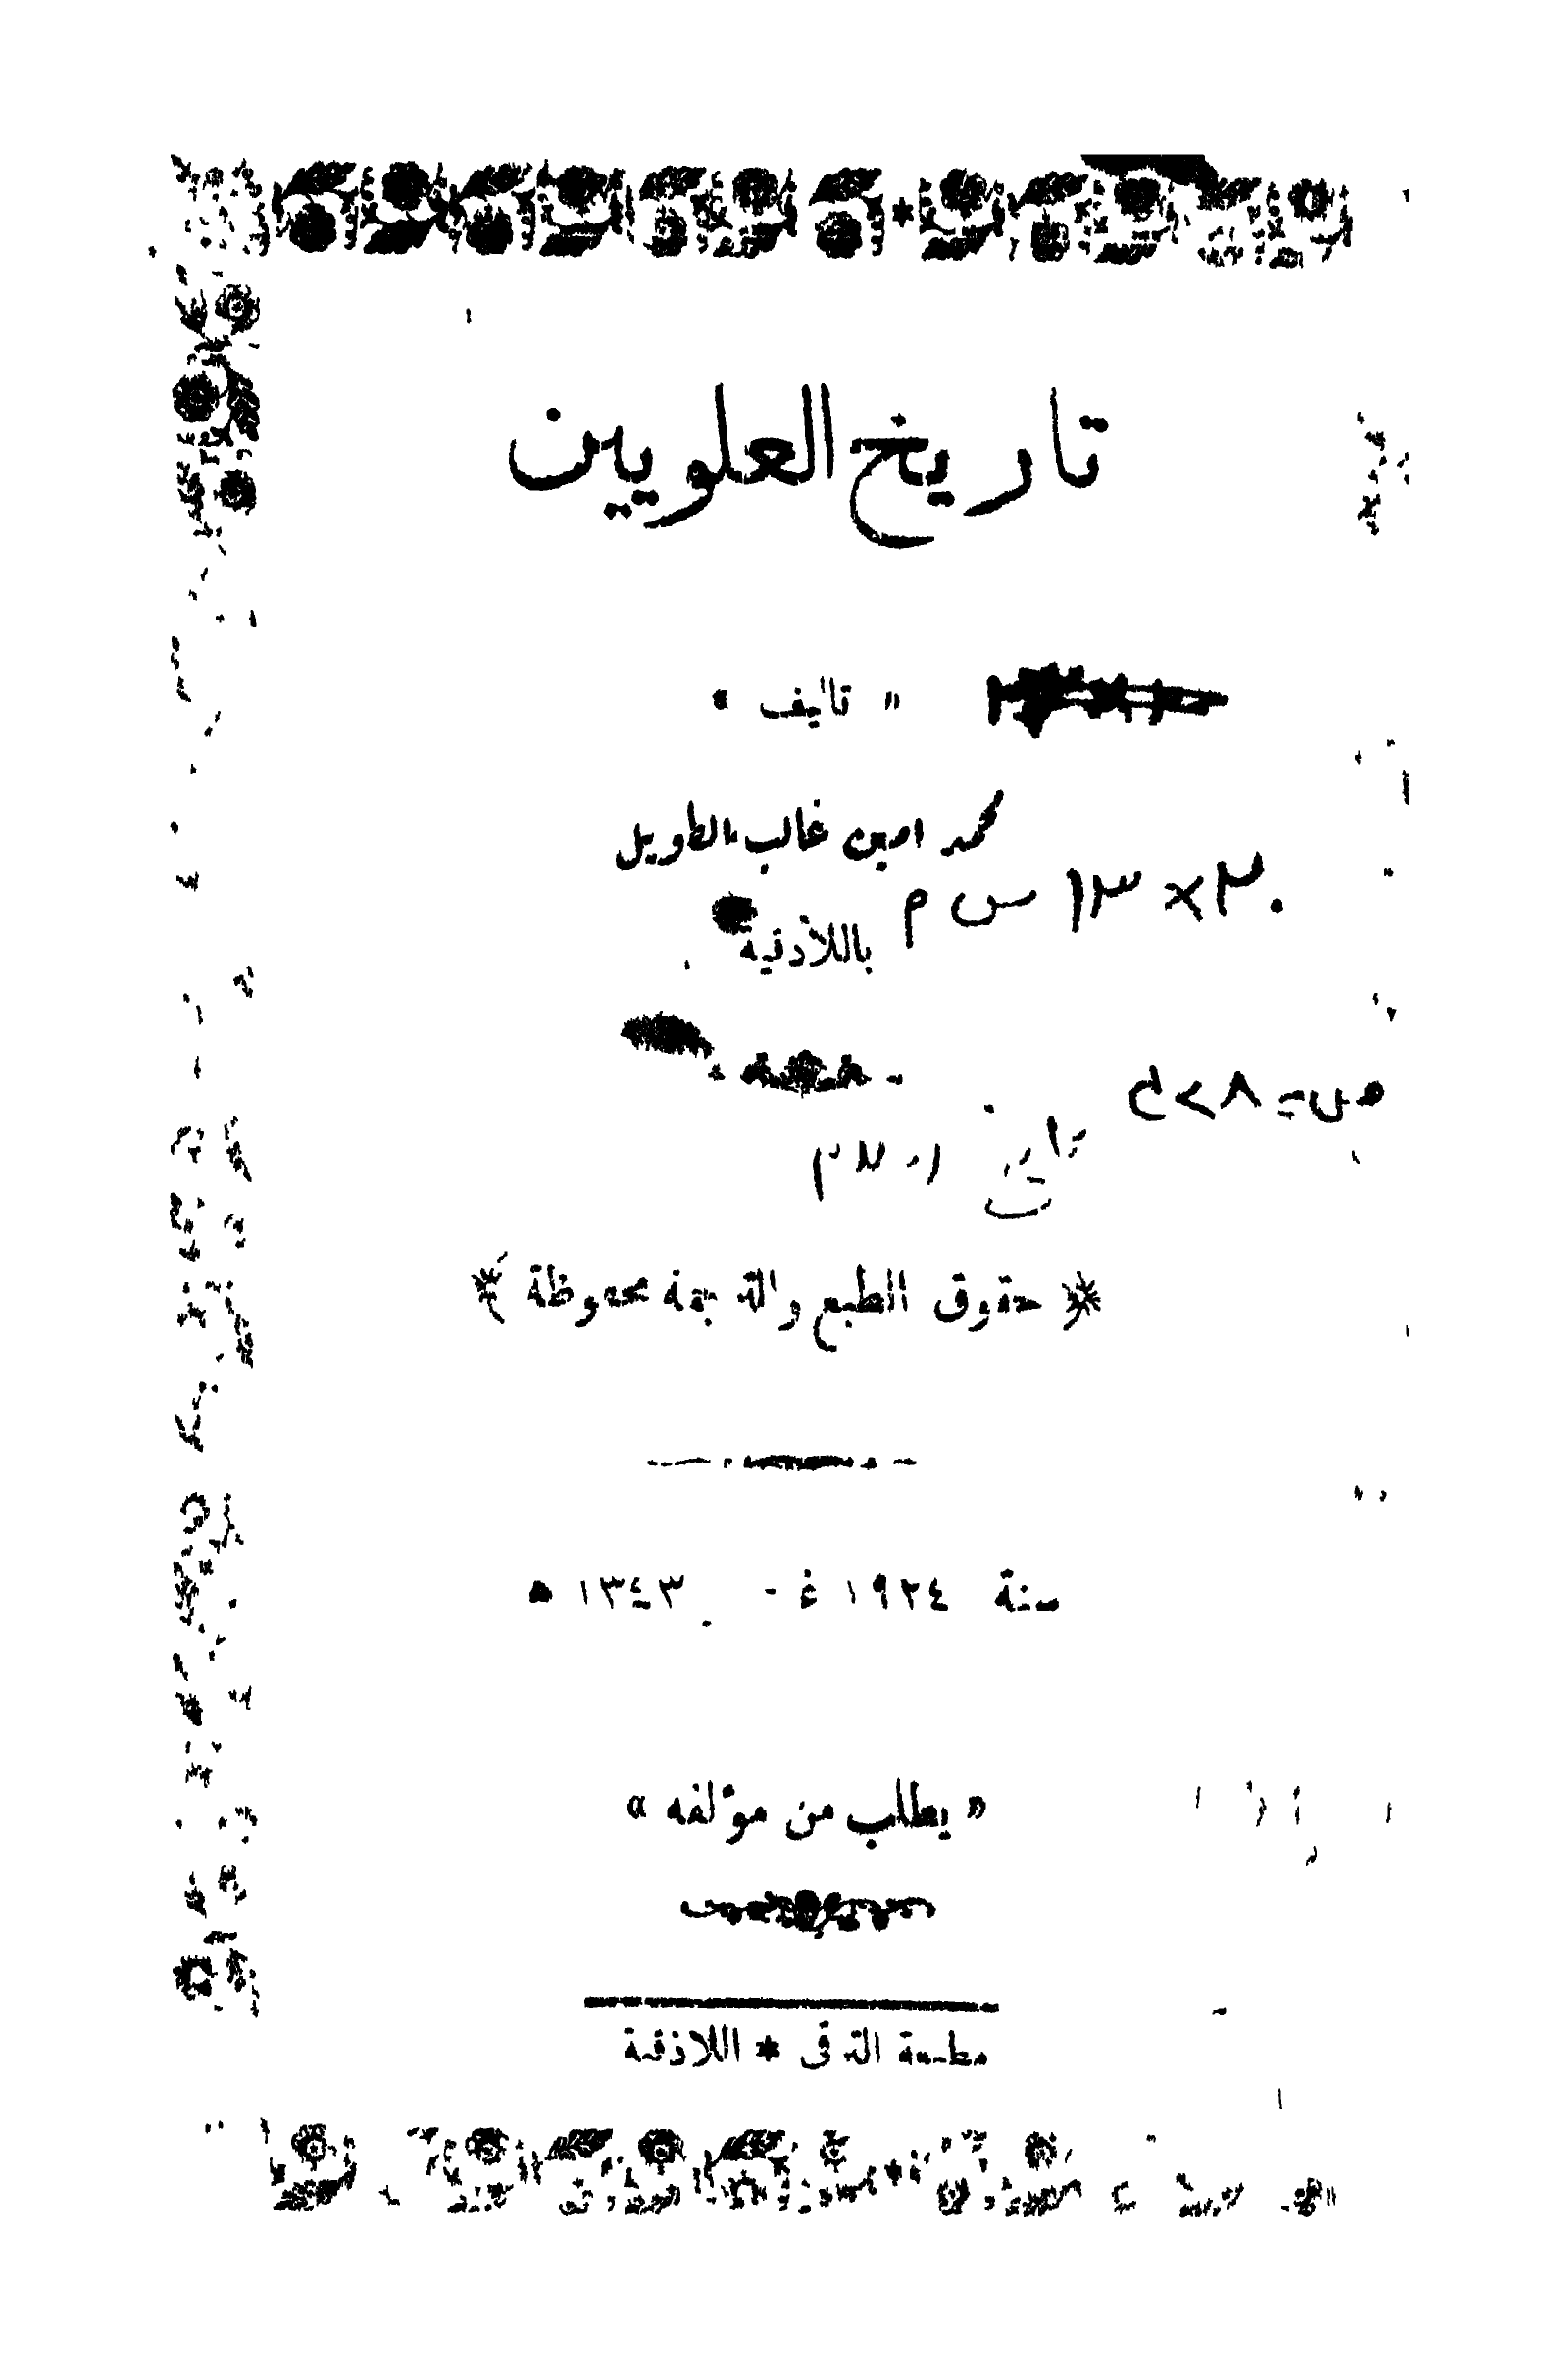 تاريخ العلويين
« تأليف »
محمد امين غالب الطويل
٢٠ × ١٣ س م
باللاذقية
﴿ حقوق الطبع والترجمة محفوظة ﴾
سنة ١٩٢٤ غ - ١٣٤٣ ه
« يطلب من مؤلفه »
مطبعة الترقي * اللاذقية